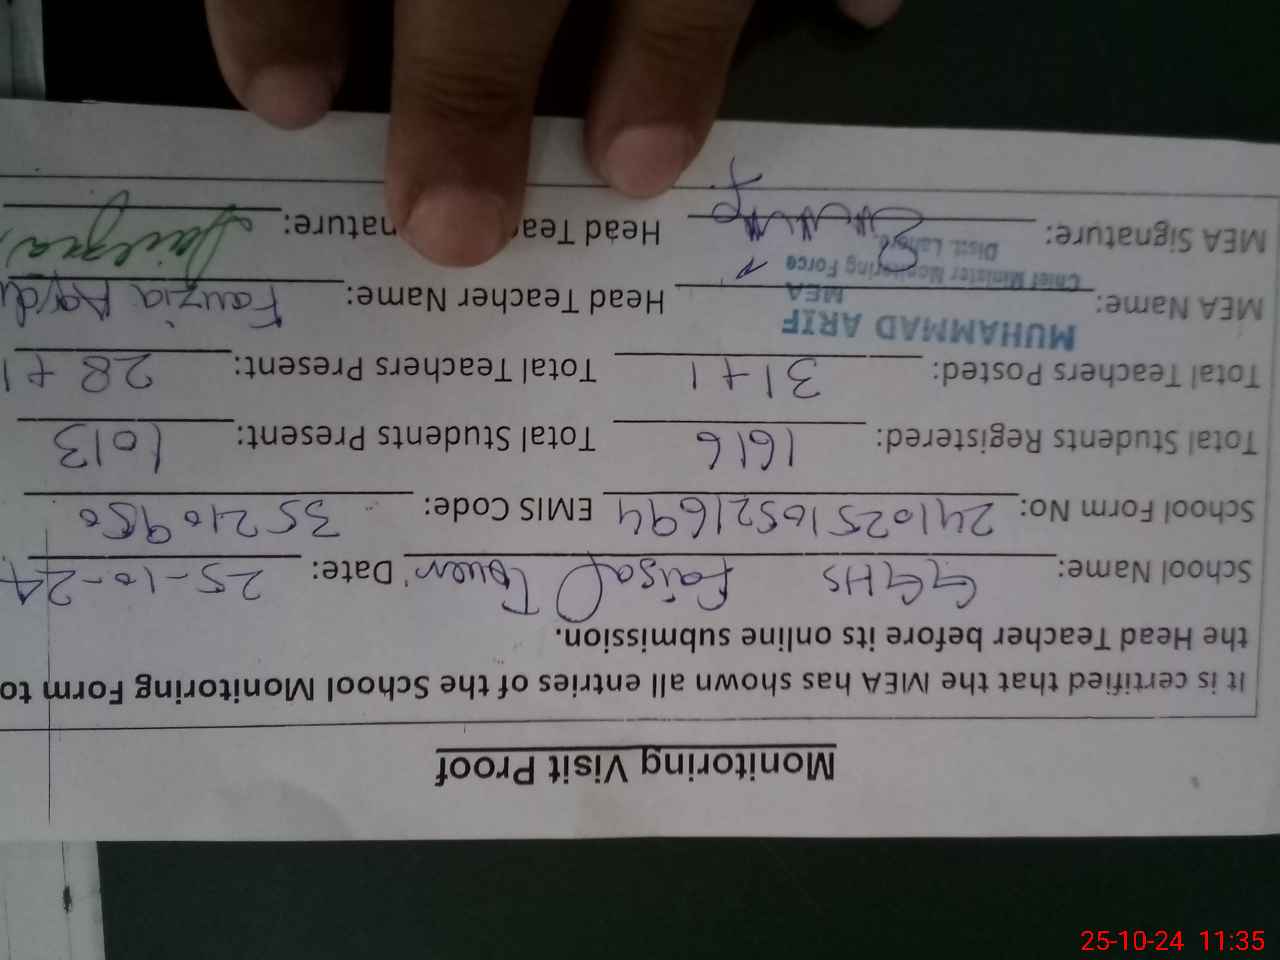 Monitoring Visit Proof
It is certified that the MEA has shown all entries of the School Monitoring Form to
the Head Teacher before its online submission.
School Name: GGHS Faisal Town Date: 25-10-24
School Form No: 24102510521694 EMIS Code: 35210950
Total Students Registered: 1616 Total Students Present: 1013
Total Teachers Posted: 31+1 Total Teachers Present: 28+1
MUHAMMAD ARIF
MEA
MEA Name: Head Teacher Name: Fauzia
Chief Minister Monitoring Force
Distt. Lahore
MEA Signature: Head Tea nature:
25-10-24 11:35